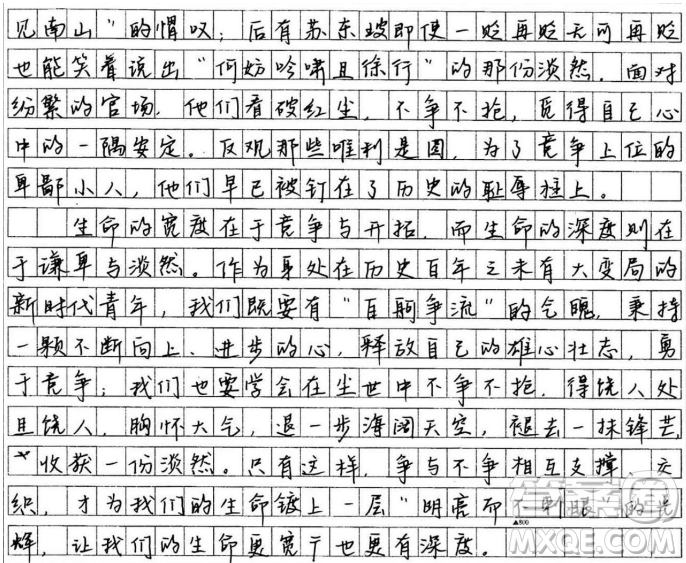 见南山”的慨叹；后有苏东坡即使一贬再贬无可再贬
也能笑着说出“何妨吟啸且徐行”的那份淡然。面对
纷繁的官场，他们看破红尘，不争不抢，觅得自己心
中的一隅安定。反观那些唯利是图，为了竞争上位的
卑鄙小人，他们早已被钉在了历史的耻辱柱上。
生命的宽度在于竞争与开拓，而生命的深度则在
于谦卑与淡然。作为身处在历史百年之未有大变局的
新时代青年，我们既要有“百舸争流”的气魄，秉持
一颗不断向上、进步的心，释放自己的雄心壮志，勇
于竞争；我们也要学会在尘世中不争不抢，得饶人处
且饶人，胸怀大气，退一步海阔天空，褪去一抹锋芒，
收获一份淡然。只有这样，争与不争相互支撑、交
织，才为我们的生命镀上一层“明亮而不刺眼”的光
辉，让我们的生命更宽广也更有深度。
▲800
答案圈
MXQE.COM